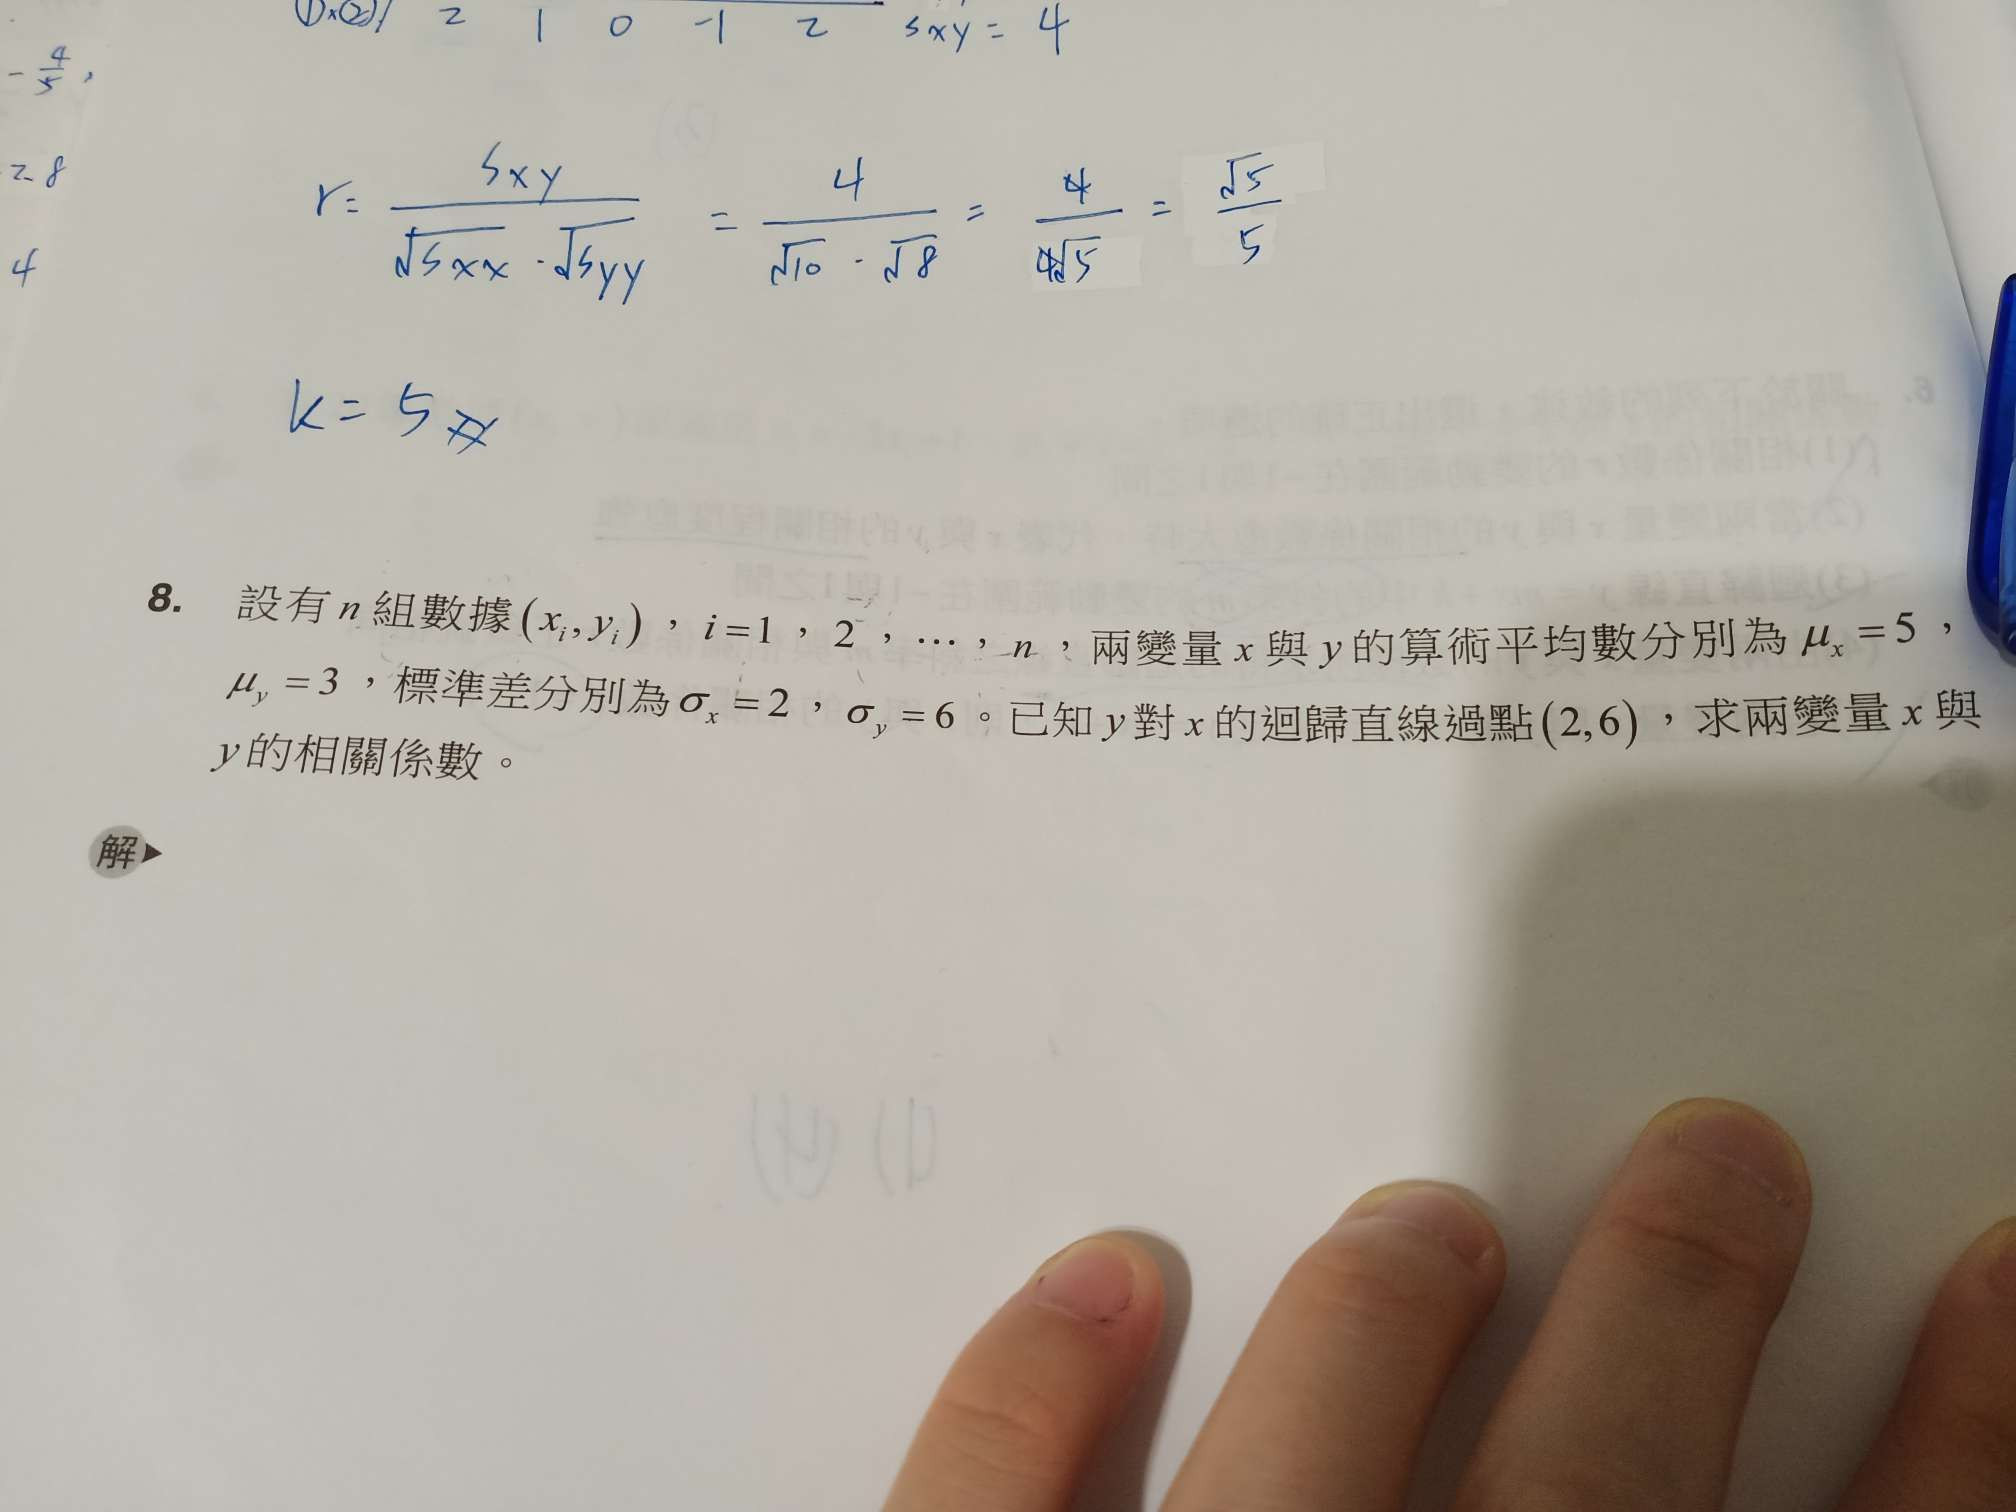 ①×② 2 1 0 -1 2 Sxy = 4
- 4/5 ,
r = Sxy / √Sxx · √Syy = 4 / √10 · √8 = 4 / 4√5 = √5 / 5
28
4
k = 5
8. 設有 n 組數據 (xᵢ, yᵢ),i=1,2,…,n,兩變量 x 與 y 的算術平均數分別為 μₓ = 5,
μ_y = 3,標準差分別為 σₓ = 2,σ_y = 6。已知 y 對 x 的迴歸直線過點 (2,6),求兩變量 x 與
y 的相關係數。
解